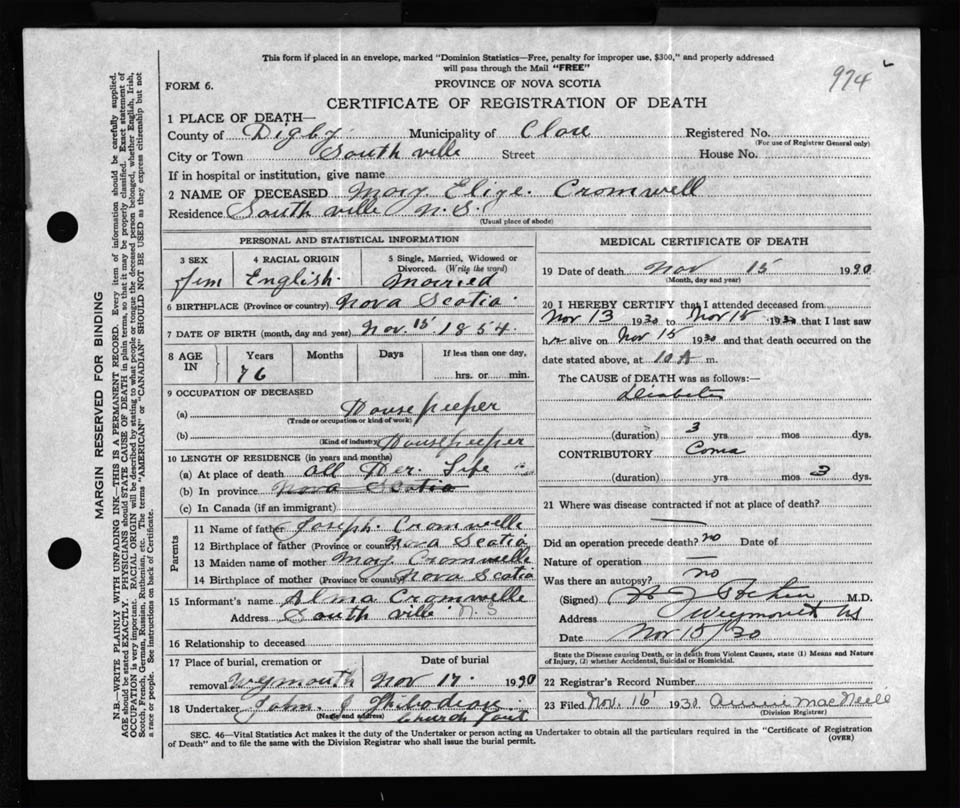 This form if placed in an envelope, marked "Dominion Statistics—Free, penalty for improper use, $300," and properly addressed
will pass through the Mail "FREE"
974
FORM 6.
PROVINCE OF NOVA SCOTIA
CERTIFICATE OF REGISTRATION OF DEATH
1 PLACE OF DEATH—
County of Digby Municipality of Clare Registered No.
(For use of Registrar General only)
City or Town South ville Street House No.
If in hospital or institution, give name
2 NAME OF DECEASED Mary Elize. Cromwell
Residence South ville N.S.
(Usual place of abode)
PERSONAL AND STATISTICAL INFORMATION
3 SEX 4 RACIAL ORIGIN 5 Single, Married, Widowed or
Divorced. (Write the word)
Fem English. Married
6 BIRTHPLACE (Province or country) Nova Scotia.
7 DATE OF BIRTH (month, day and year) Nov. 15 1854.
8 AGE IN Years Months Days If less than one day,
76 hrs. or min.
9 OCCUPATION OF DECEASED
(a) Housekeeper
(Trade or occupation or kind of work)
(b) Housekeeper
(Kind of industry)
10 LENGTH OF RESIDENCE (in years and months)
(a) At place of death all Her. Life
(b) In province Nova Scotia
(c) In Canada (if an immigrant)
Parents
11 Name of father Joseph. Cromwelle
12 Birthplace of father (Province or country) Nova Scotia
13 Maiden name of mother May Cromwelle
14 Birthplace of mother (Province or country) Nova Scotia
15 Informant's name Alma Cromwelle
Address South ville N.S
16 Relationship to deceased
17 Place of burial, cremation or Date of burial
removal Weymouth Nov 17. 1930
18 Undertaker John
(Name and address) Church Point
MEDICAL CERTIFICATE OF DEATH
19 Date of death Nov 15 1930
(Month, day and year)
20 I HEREBY CERTIFY that I attended deceased from
Nov 13 1930 to Nov 15 1930 that I last saw
her alive on Nov 15 1930 and that death occurred on the
date stated above, at 10 A m.
The CAUSE of DEATH was as follows:—
Diabetes
(duration) 3 yrs mos dys.
CONTRIBUTORY Coma
(duration) yrs mos 3 dys.
21 Where was disease contracted if not at place of death?
Did an operation precede death? no Date of
Nature of operation —
Was there an autopsy? no
(Signed) M.D.
Address Weymouth NS
Date Nov 15/30
State the Disease causing Death, or in death from Violent Causes, state (1) Means and Nature
of Injury, (2) whether Accidental, Suicidal or Homicidal.
22 Registrar's Record Number
23 Filed Nov. 16 1930 Annie MacNeill
(Division Registrar)
SEC. 46—Vital Statistics Act makes it the duty of the Undertaker or person acting as Undertaker to obtain all the particulars required in the "Certificate of Registration
of Death" and to file the same with the Division Registrar who shall issue the burial permit.
(OVER)
MARGIN RESERVED FOR BINDING
N.B.—WRITE PLAINLY WITH UNFADING INK—THIS IS A PERMANENT RECORD. Every item of information should be carefully supplied.
AGE should be stated EXACTLY. PHYSICIANS should STATE CAUSE OF DEATH in plain terms, so that it may be properly classified. Exact statement of
OCCUPATION is very important. RACIAL ORIGIN will be described by stating to what people or tongue the deceased person belonged, whether English, Irish,
Scotch, French, German, Russian, Ruthenian, etc. The terms "AMERICAN" or "CANADIAN" SHOULD NOT BE USED as they express citizenship but not
a race or people. See instructions on back of Certificate.